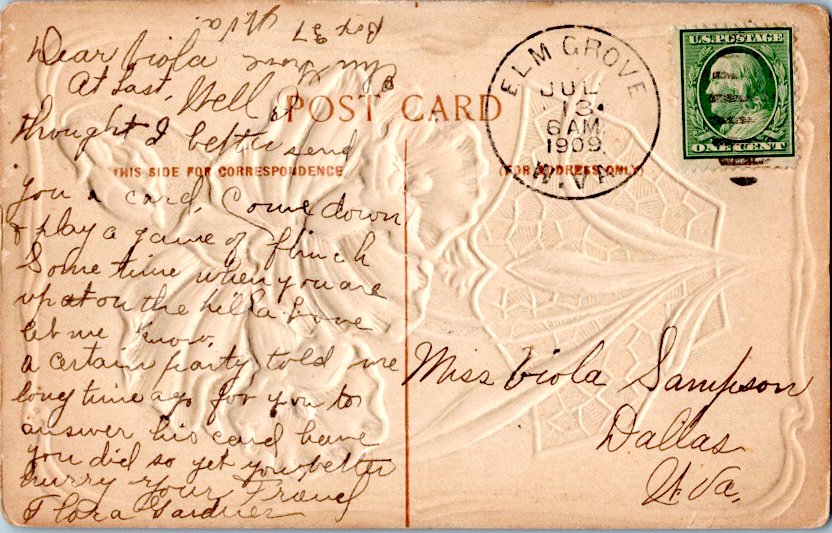 Box 37
W.Va.
Elm Grove
Dear Viola
At last, Well I
thought I better send
you a card. Come down
& play a game of flinch
Some time when you are
up at on the hill &
let me know.
a certain party told me
long time ago for you to
answer his card have
you did so yet you better
hurry your Friend
Flora Gardner
POST CARD
THIS SIDE FOR CORRESPONDENCE
(FOR ADDRESS ONLY)
ELM GROVE
JUL
13
6 AM
1909
W. VA.
U.S. POSTAGE
ONE CENT
Miss Viola Sampson
Dallas
W. Va.